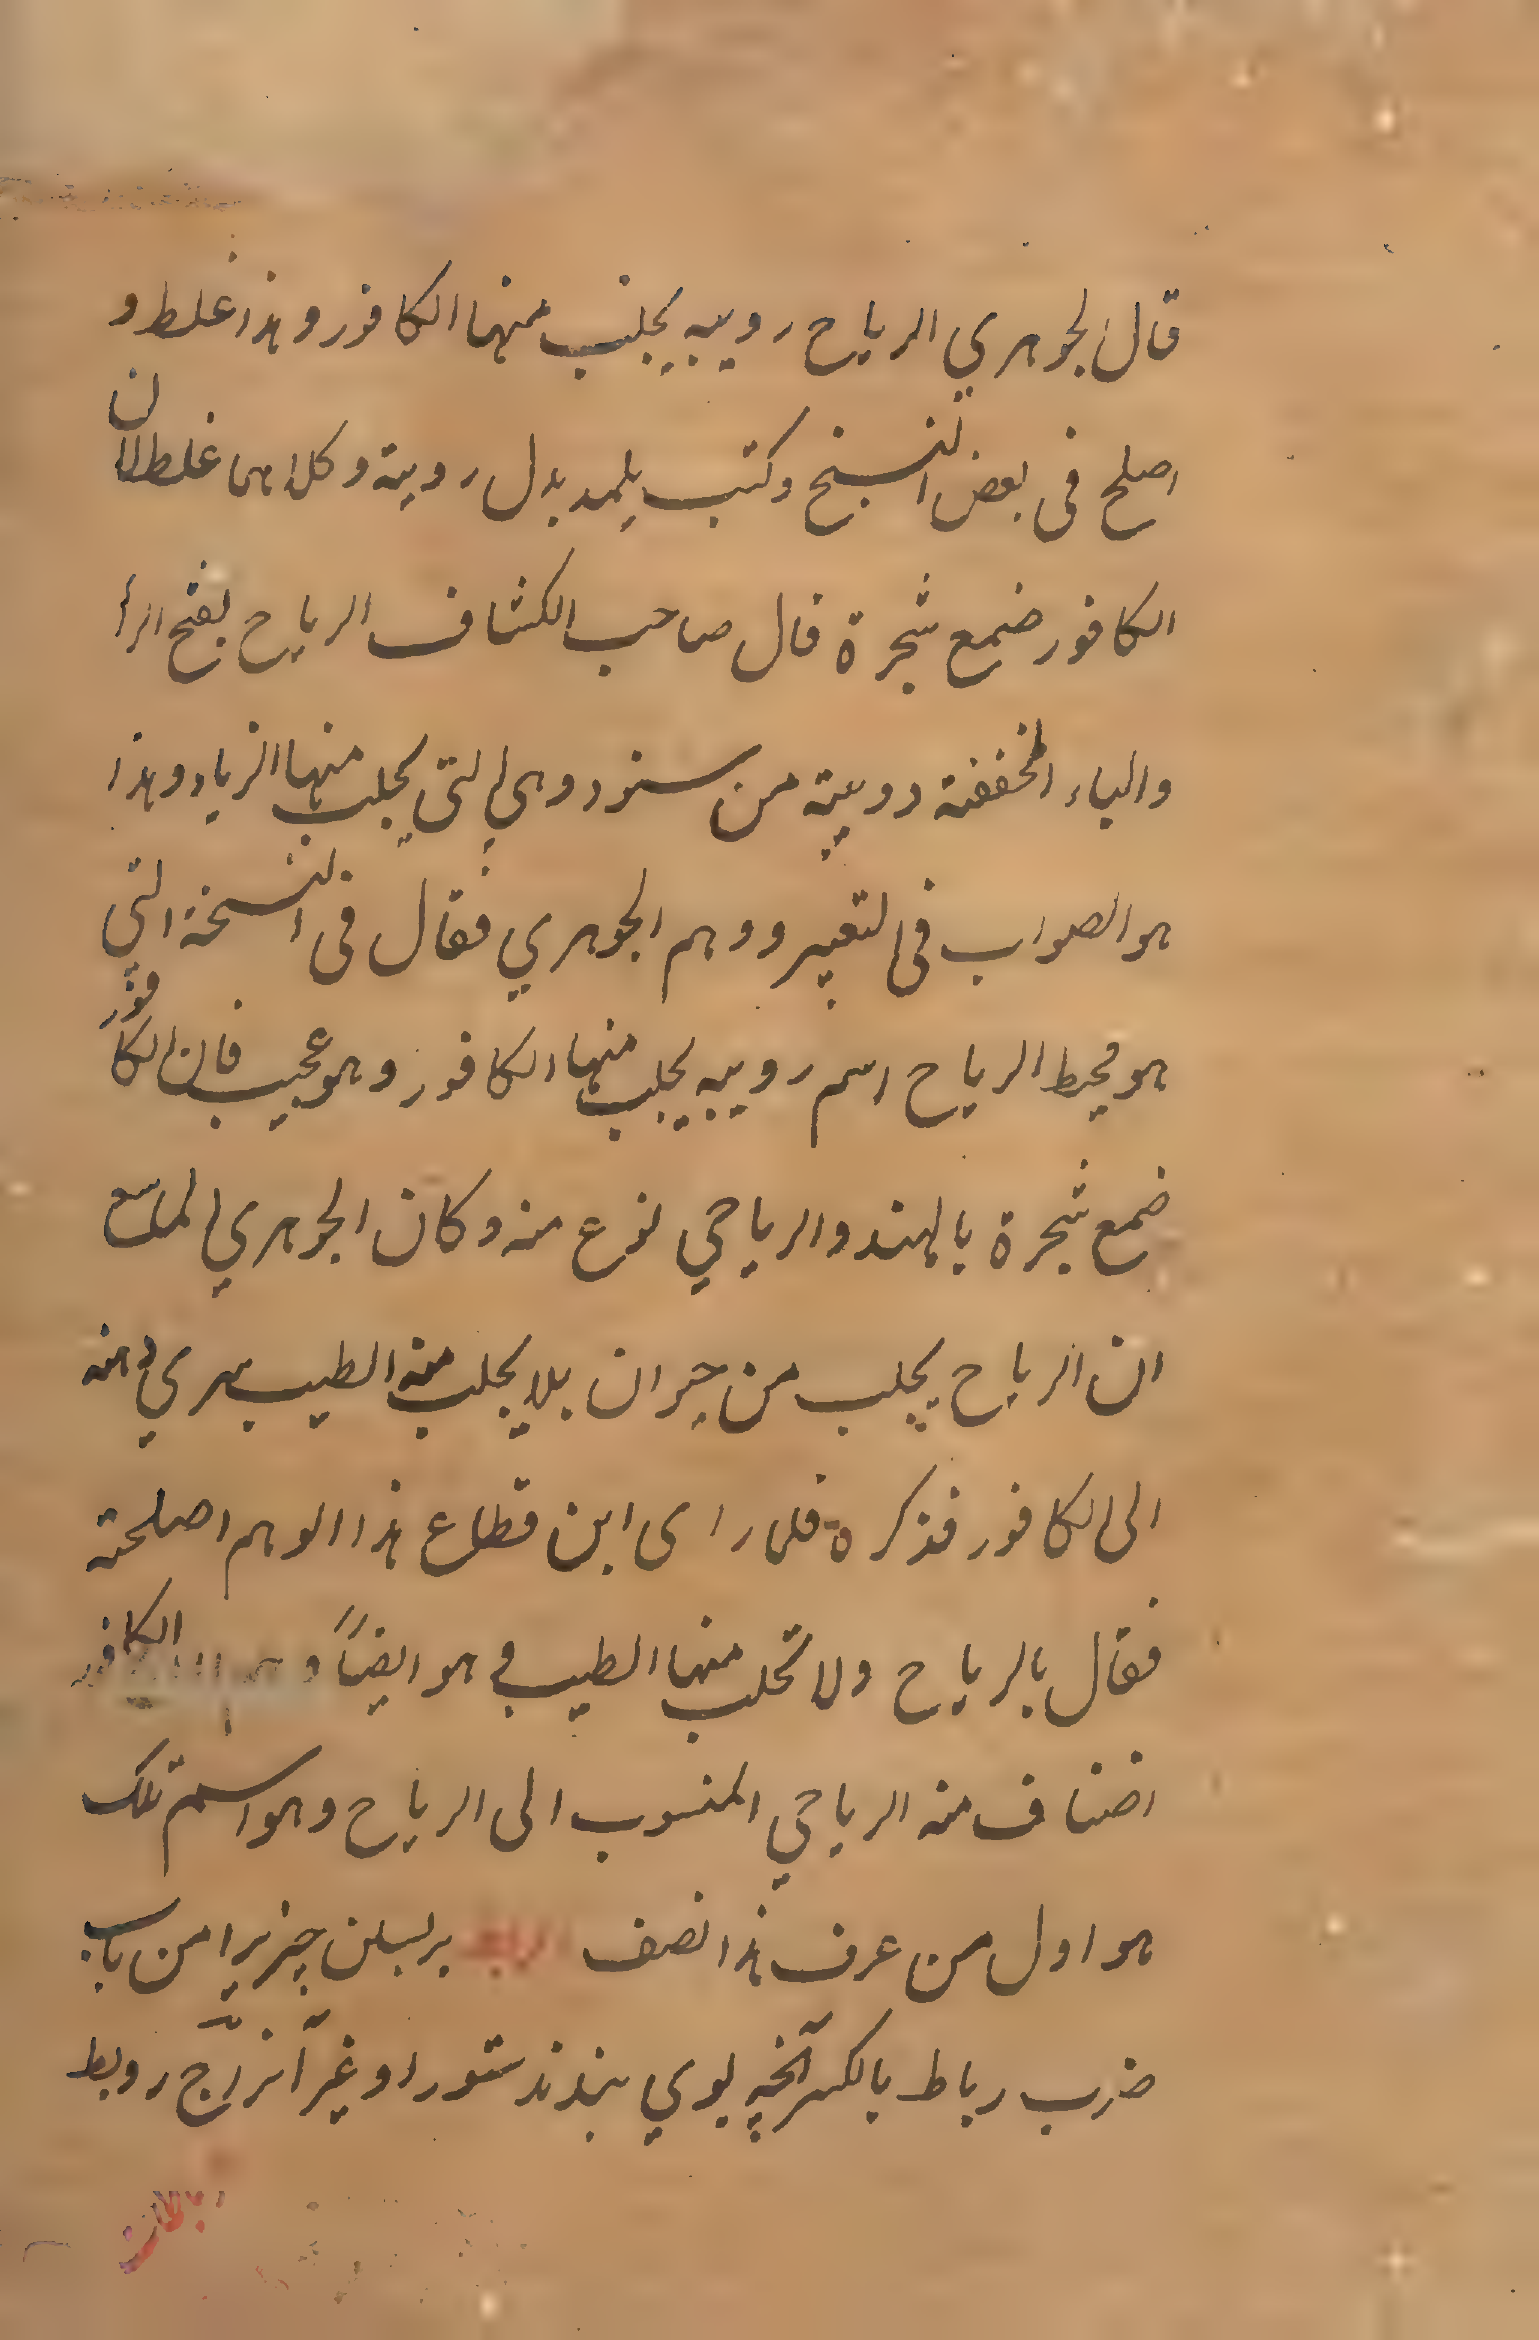 قال الجوهري الرياح رويبه يجلب منها الكافور وهذا غلط و
اصلح فى بعض النسخ وكتب يلمد بدل رويبة وكلاهما غلط لان
الكافور ضمع شجرة قال صاحب الكشاف الرياح بفتح الرأ
والياء المخففة دويبة من سنور وهى التي يجلب منها الزياد وهذا
هو الصواب فى التعبير ووهم الجوهري فقال فى النسخة التي
هو محيط الرياح اسم رويبه يجلب منها الكافور وهو عجيب فان الكافور
ضمع شجرة بالهند والرياحي نوع منه وكان الجوهري لما سمع
ان الرياح يجلب من حيران بلا يجلب منه الطيب سري منه
الى الكافور فذكرة فلما راى ابن قطاع هذا الوهم اصلحته
فقال بالرياح ولا تحلب منها الطيب هو ايضاً وهم الكافور
اضناف منه الرياحي المنسوب الى الرياح وهو اسم تلك
هو اول من عرف هذا نصف بربستن چيزيرا من باب
ضرب رباط بالكسر آنچه بوي بندند ستور را وغير آنرا ج ربط